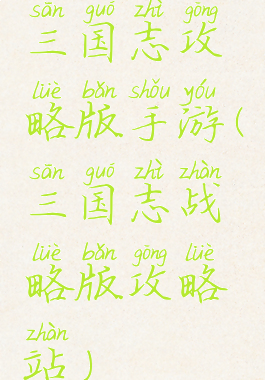 sān guó zhì gōng
三国志攻
lüè bǎn shǒu yóu
略版手游(
sān guó zhì zhàn
三国志战
lüè bǎn gōng lüè
略版攻略
zhàn
站)